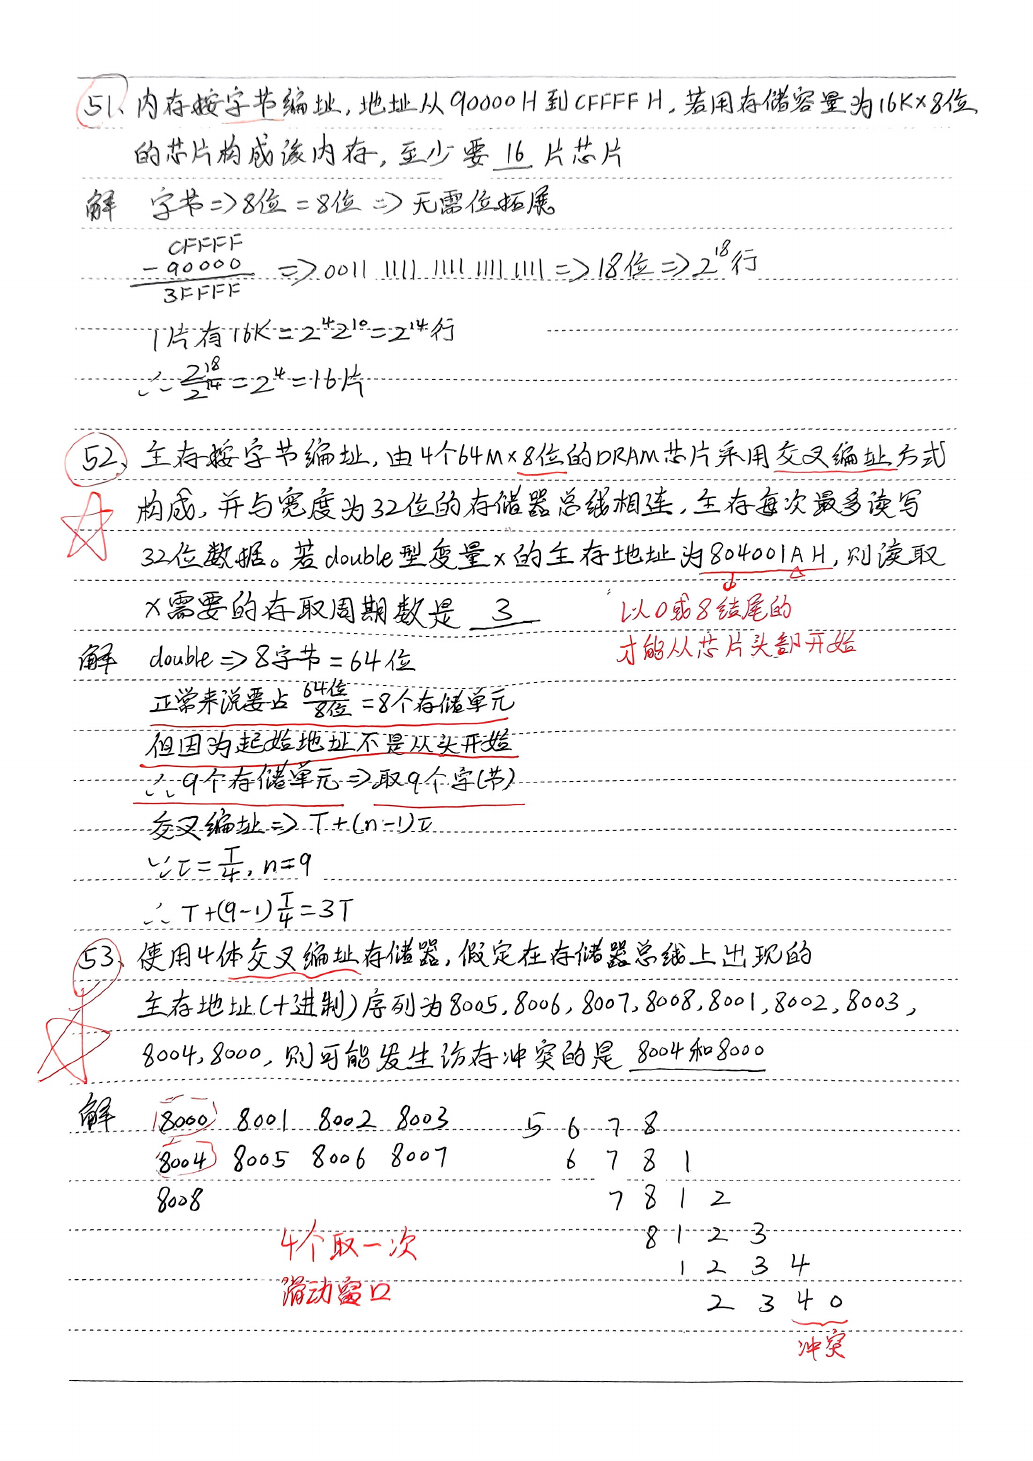 51、内存按字节编址,地址从90000H到CFFFFH,若用存储容量为16K×8位
的芯片构成该内存,至少要 16 片芯片
解 字节=>8位=8位=>无需位拓展
CFFFF
-90000 =>0011 1111 1111 1111 1111=>18位=>2^18行
3FFFF
1片有16K=2^4 2^10=2^14行
∴ 2^18/2^14=2^4=16片
52、主存按字节编址,由4个64M×8位的DRAM芯片采用交叉编址方式
构成,并与宽度为32位的存储器总线相连,主存每次最多读写
32位数据。若double型变量x的主存地址为804001AH,则读取
x需要的存取周期数是 3
以0或8结尾的
才能从芯片头部开始
解 double=>8字节=64位
正常来说要占 64位/8位 =8个存储单元
但因为起始地址不是从头开始
∴9个存储单元=>取9个字(节)
交叉编址=>T+(n-1)τ
∵τ=T/4,n=9
∴T+(9-1)T/4=3T
53、使用4体交叉编址存储器,假定在存储器总线上出现的
主存地址(十进制)序列为8005,8006,8007,8008,8001,8002,8003,
8004,8000,则可能发生访存冲突的是 8004和8000
解 8000 8001 8002 8003 5 6 7 8
8004 8005 8006 8007 6 7 8 1
8008 7 8 1 2
4个取一次 8 1 2 3
滑动窗口 1 2 3 4
2 3 4 0
冲突